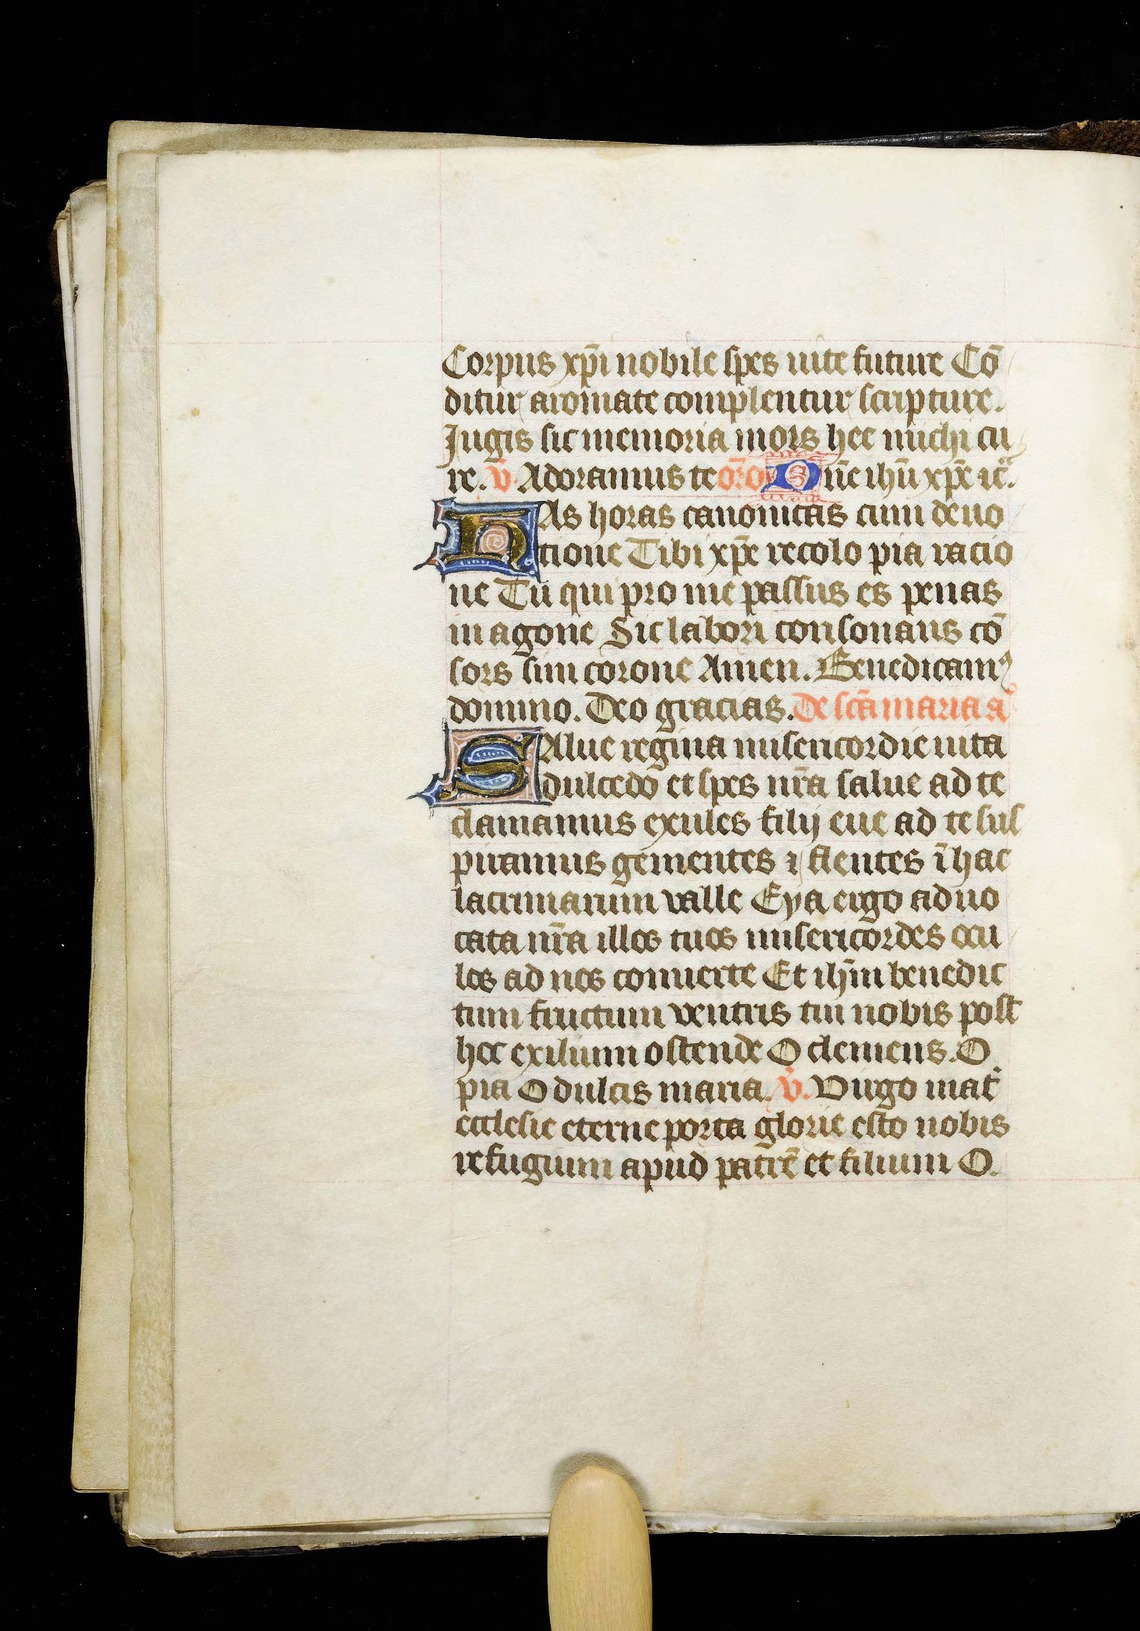 Corpus xp̄i nobile spes uite future Cō
ditur aromate complentur scripture.
Jugis sit memoria mors hec michi cu
re. v̄. Adoramus te or̄o Dn̄e ihū xp̄e ⁊c̄.
HAs horas canonicas cum deuo
tione Tibi xp̄e recolo pia racio
ne Tu qui pro me passus es penas
in agone Sic labori consonans cō
sors sim corone Amen. Benedicamꝰ
domino. Deo gracias. De sc̄a maria aᷓ
SAlue regina misericordie uita
dulcedo et spes nr̄a salue ad te
clamamus exules filij eue ad te sus
piramus gementes ⁊ flentes ī hac
lacrimarum valle Eya ergo aduo
cata nr̄a illos tuos misericordes ocu
los ad nos conuerte Et ihm̄ benedic
tum fructum ventris tui nobis post
hoc exilium ostende O clemens. O
pia O dulcis maria. v̄. Virgo mat̄
ecclesie eterne porta glorie esto nobis
refugium apud patrē et filium O.